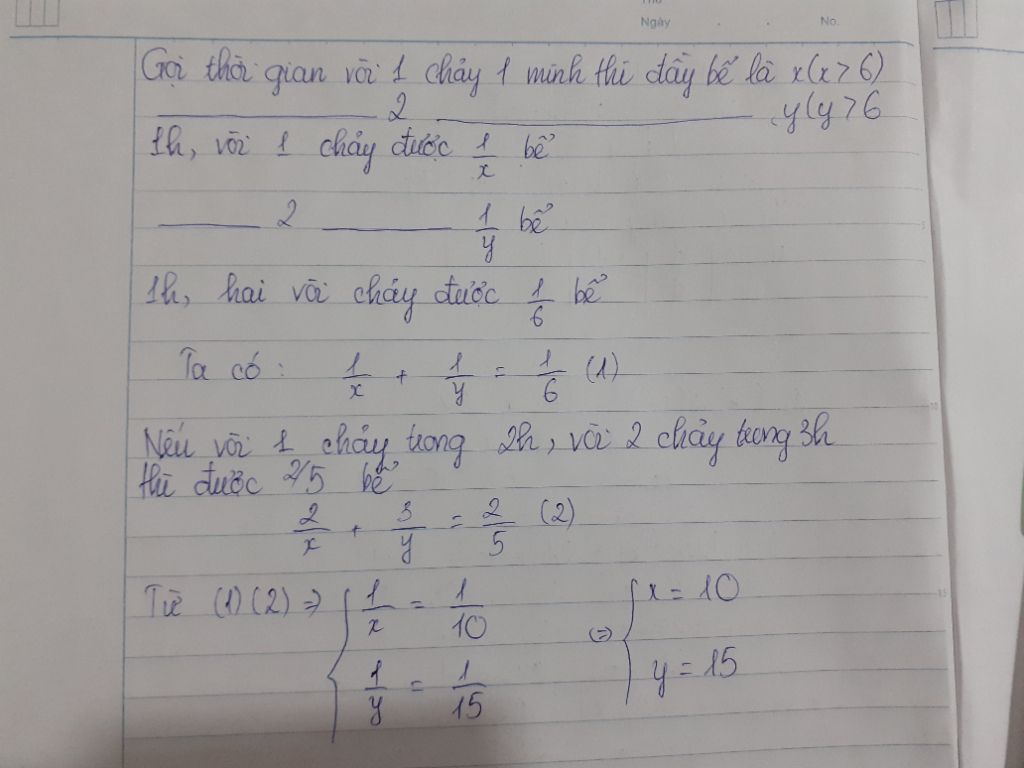 Thứ
Ngày . . No.
Gọi thời gian vòi 1 chảy 1 mình thì đầy bể là x(x>6)
2 y(y>6
1h, vòi 1 chảy được 1/x bể
2 1/y bể
1h, hai vòi chảy được 1/6 bể
Ta có: 1/x + 1/y = 1/6 (1)
Nếu vòi 1 chảy trong 2h, vòi 2 chảy trong 3h
thì được 2/5 bể
2/x + 3/y = 2/5 (2)
Từ (1)(2) => { 1/x = 1/10 (=) { x = 10
1/y = 1/15 y = 15